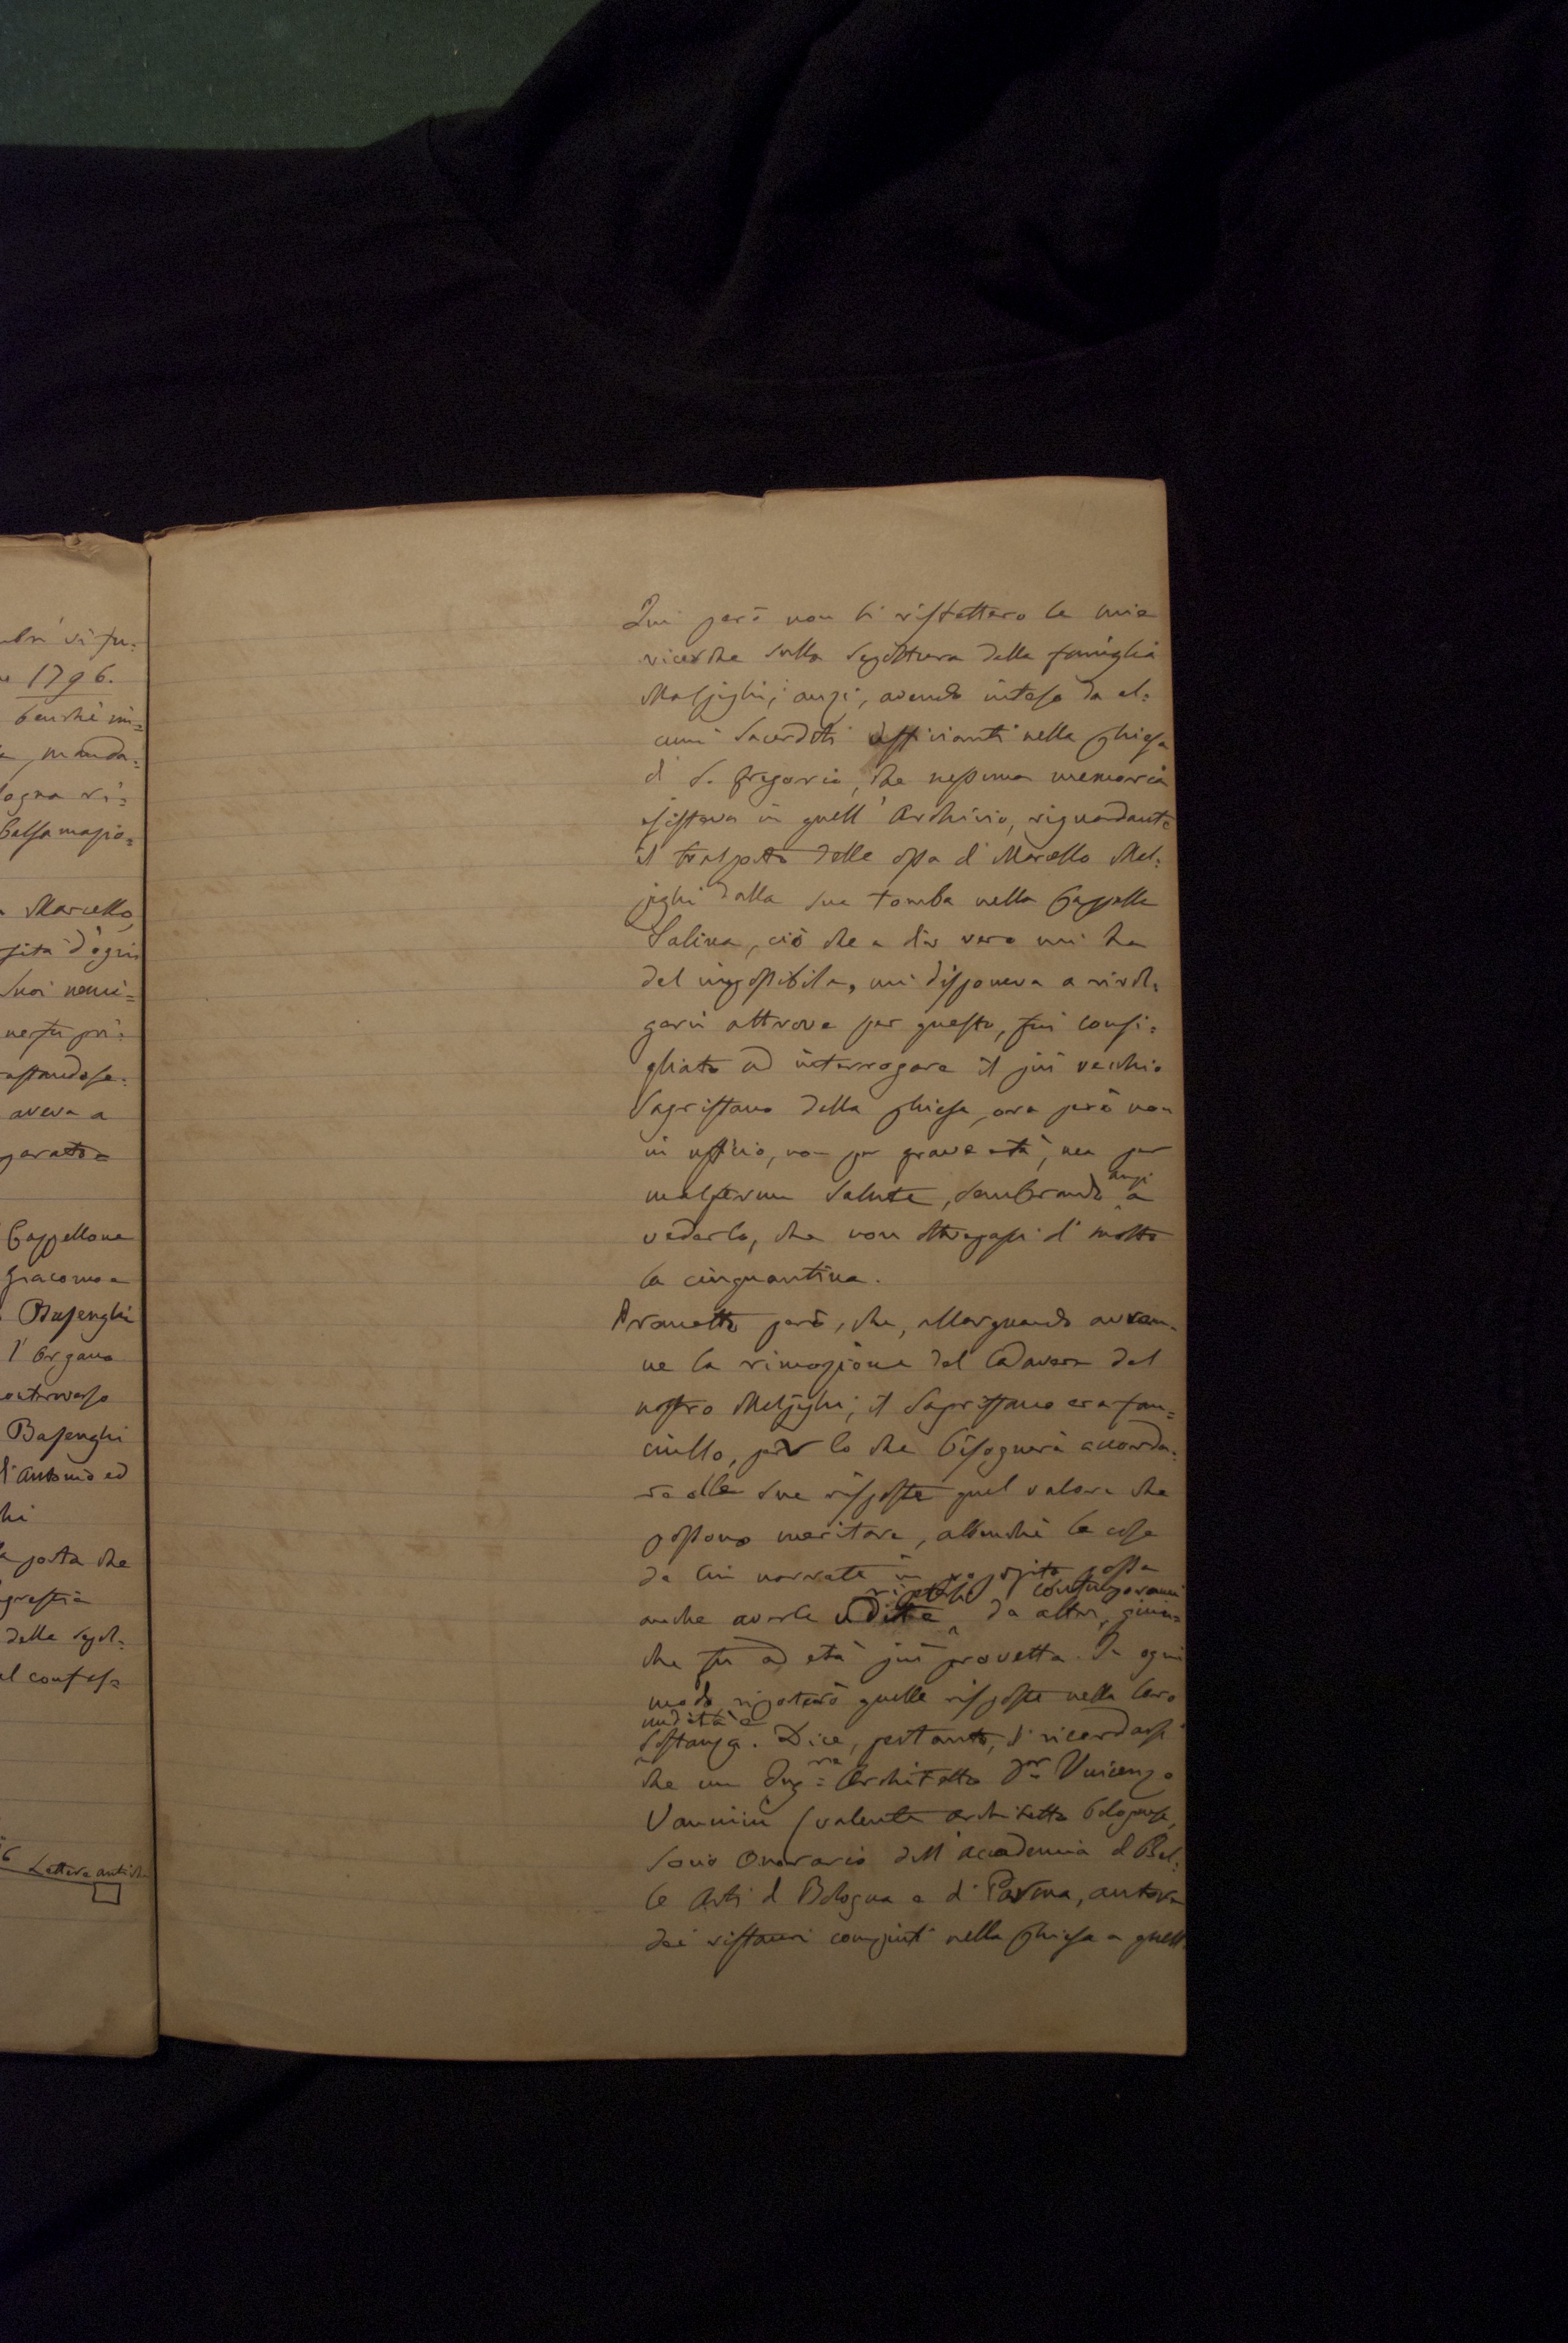 ubri vi fu=
e 1796.
benchè in=
manda=
logna ri=
balsamazio=
Marcello,
sita d'ogni
suoi nemi=
ne fu pri=
astandose=
aveva a
parato e
Cappellone
Giacomo e
Basenghi
l'Organo
Basenghi
d'Antonio ed
hi
porta che
grestia
della sepol=
el confes=
6 Lettere antiche
Qui però non si ristettero le mie
ricerche sulla sepoltura della famiglia
Malpighi; anzi, avendo inteso da al=
cuni Sacerdoti uffizianti nella Chiesa
di S. Gregorio, che nessuna memoria
esisteva in quell'Archivio, riguardante
il trasporto delle ossa di Marcello Mal=
pighi dalla sua tomba nella Cappella
Salina, ciò che a dir vero mi ha
del impossibile, mi disponeva a rivol=
germi altrove per questo, fui consi=
gliato ad interrogare il più vecchio
Sagristano della Chiesa, ora però non
in ufficio, non per grave età, nea per
malferma salute, sembrando anzi a
vederlo, che non oltrepassi di molto
la cinquantina.
Prometto però, che, allorquando avven=
ne la rimozione del Cadavere del
nostro Malpighi, il Sagristano era fan=
ciullo, per lo che bisognerà accorda=
re alle sue risposte quel valore che
possono meritare, allenchè le cose
da lui narrate in proposito possa
ripetere contemporanei
anche averle udite da altri, giun=
che fu ad età più provetta. In ogni
modo riporterò quelle risposte nella loro
nudità e
sostanza. Dice, pertanto, di ricordarsi
che un Ing=re Architetto Dor Vincenzo
Vannini (valente architetto bolognese,
Socio Onorario dell'Accademia di Bel=
le Arti di Bologna e di Parma, autore
dei ristauri compiuti nella Chiesa a quell'